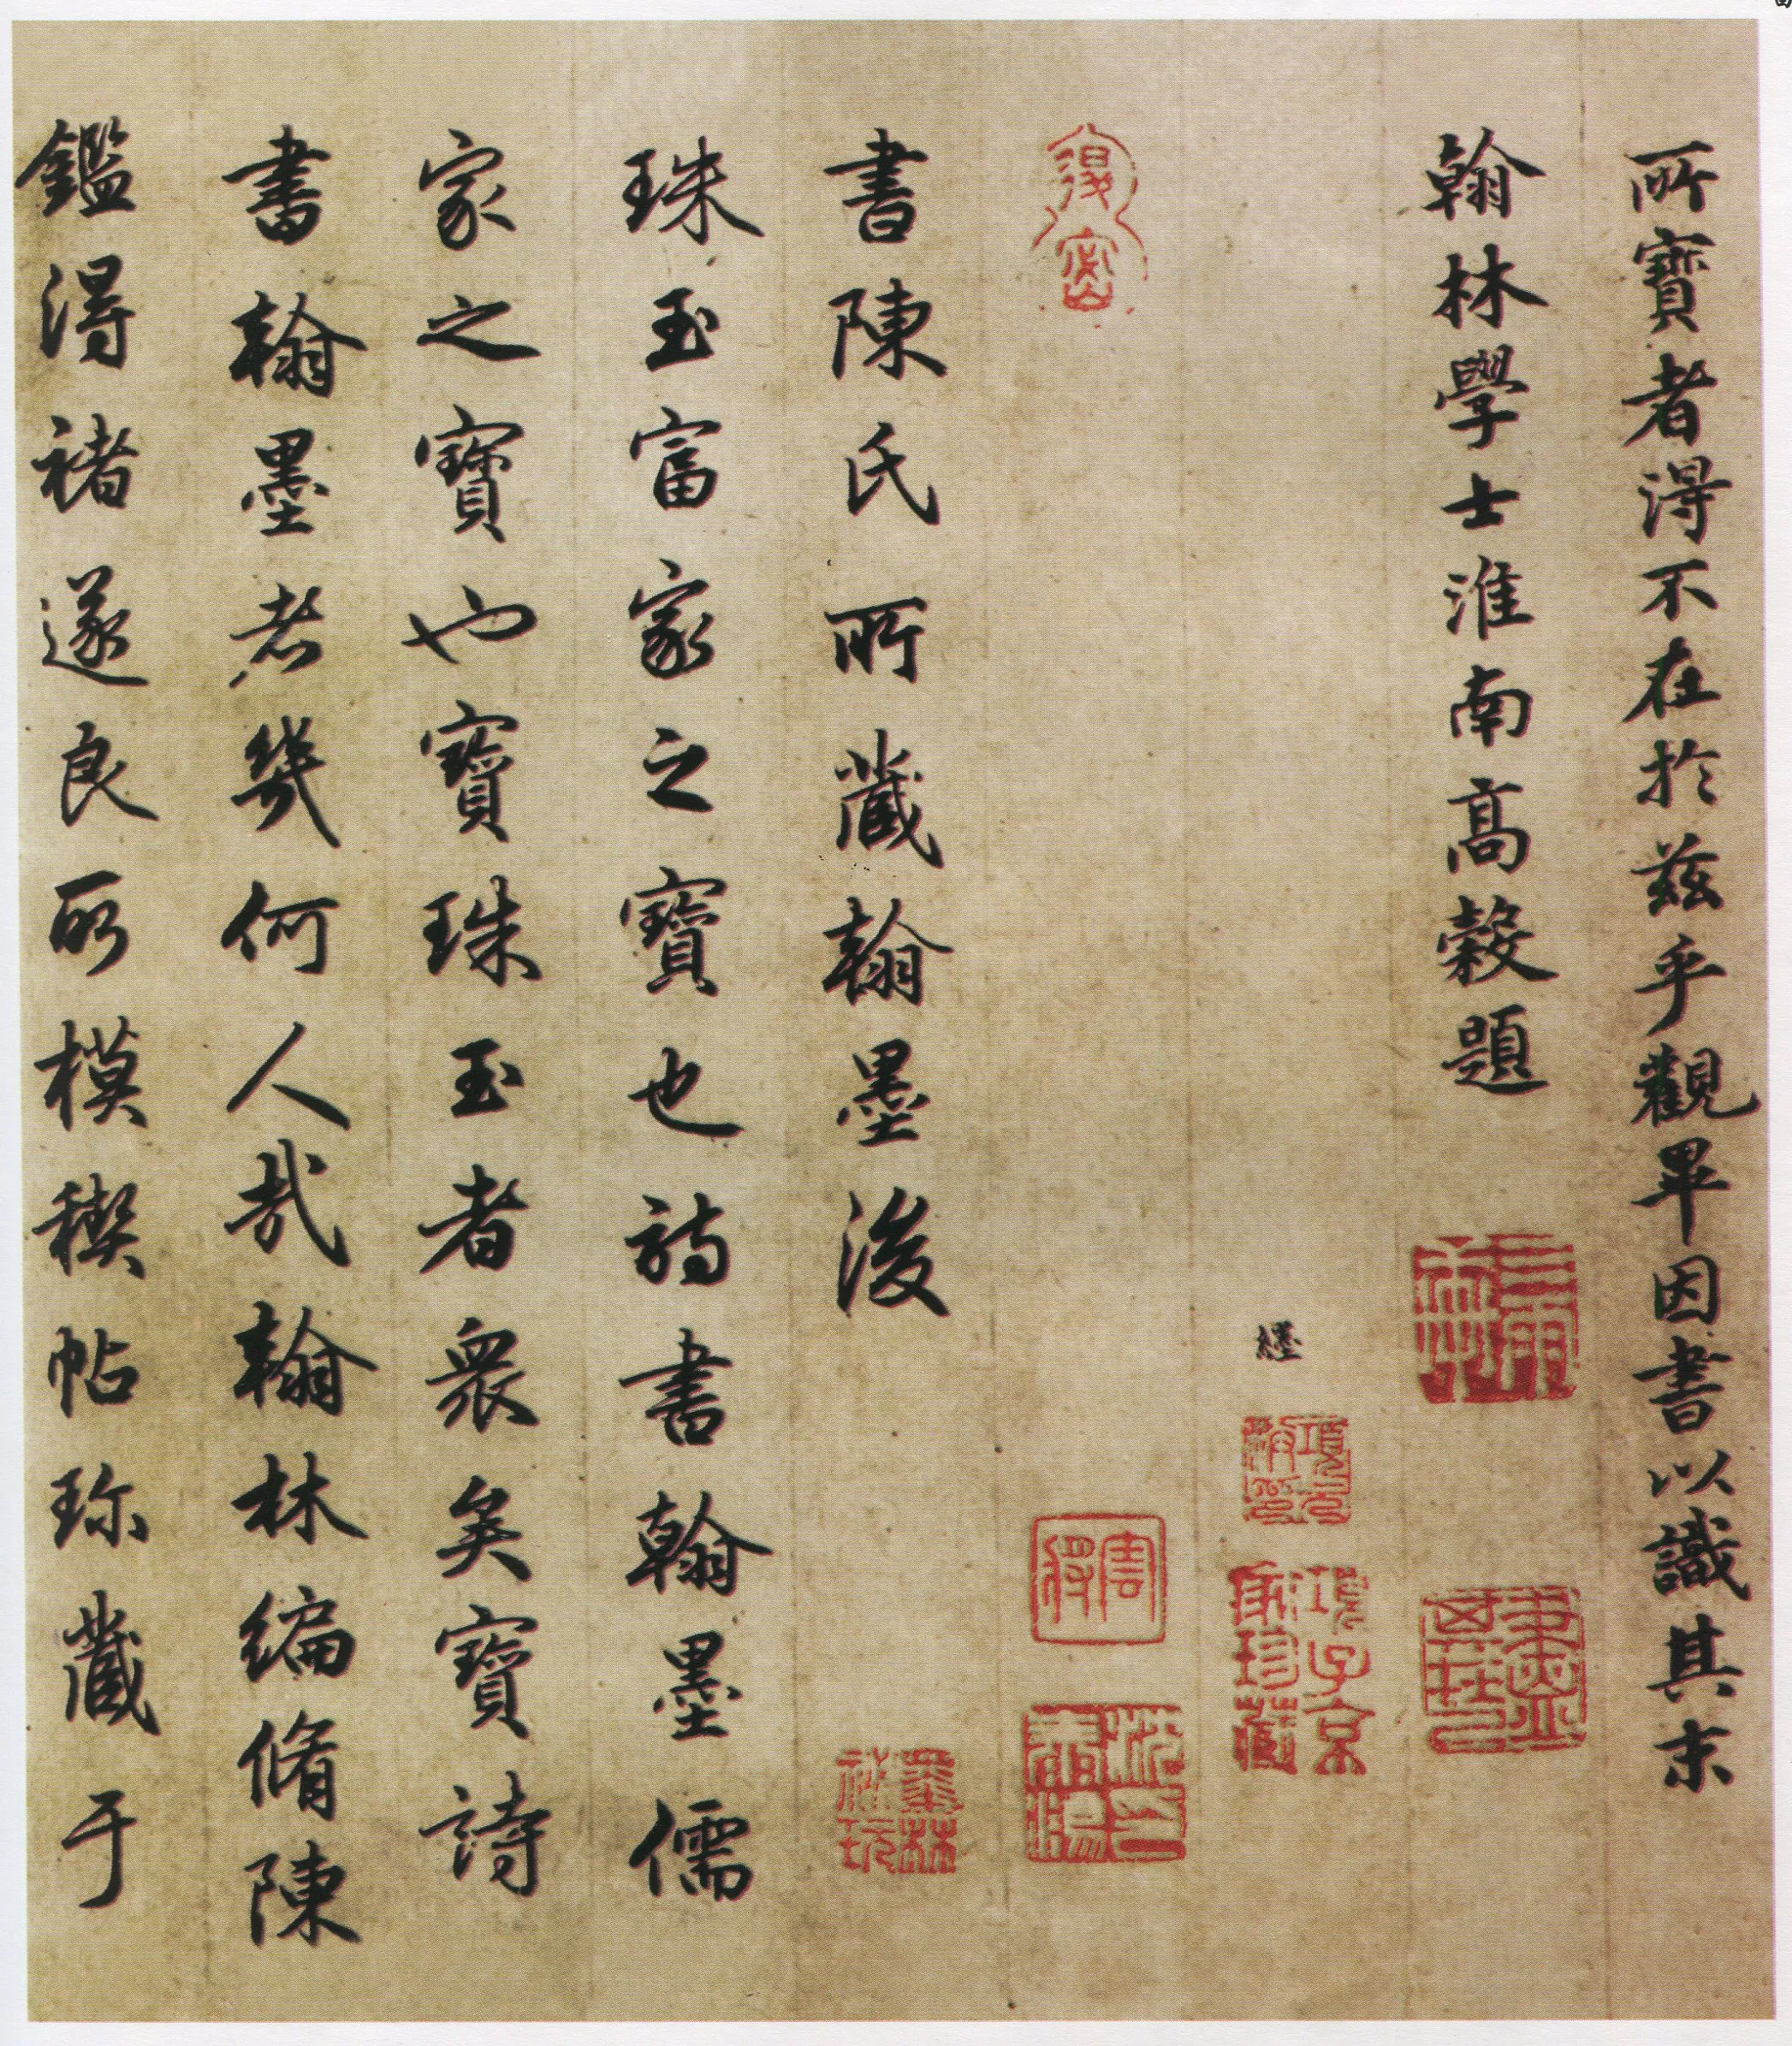 所寶者得不在於茲乎觀畢因書以識其末
翰林學士淮南高穀題
書陳氏所藏翰墨後
珠玉富家之寶也詩書翰墨儒
家之寶也寶珠玉者衆矣寶詩
書翰墨者幾何人哉翰林編脩陳
鑑得褚遂良所模稧帖珎藏于
項子京家珍藏
墨林祕玩